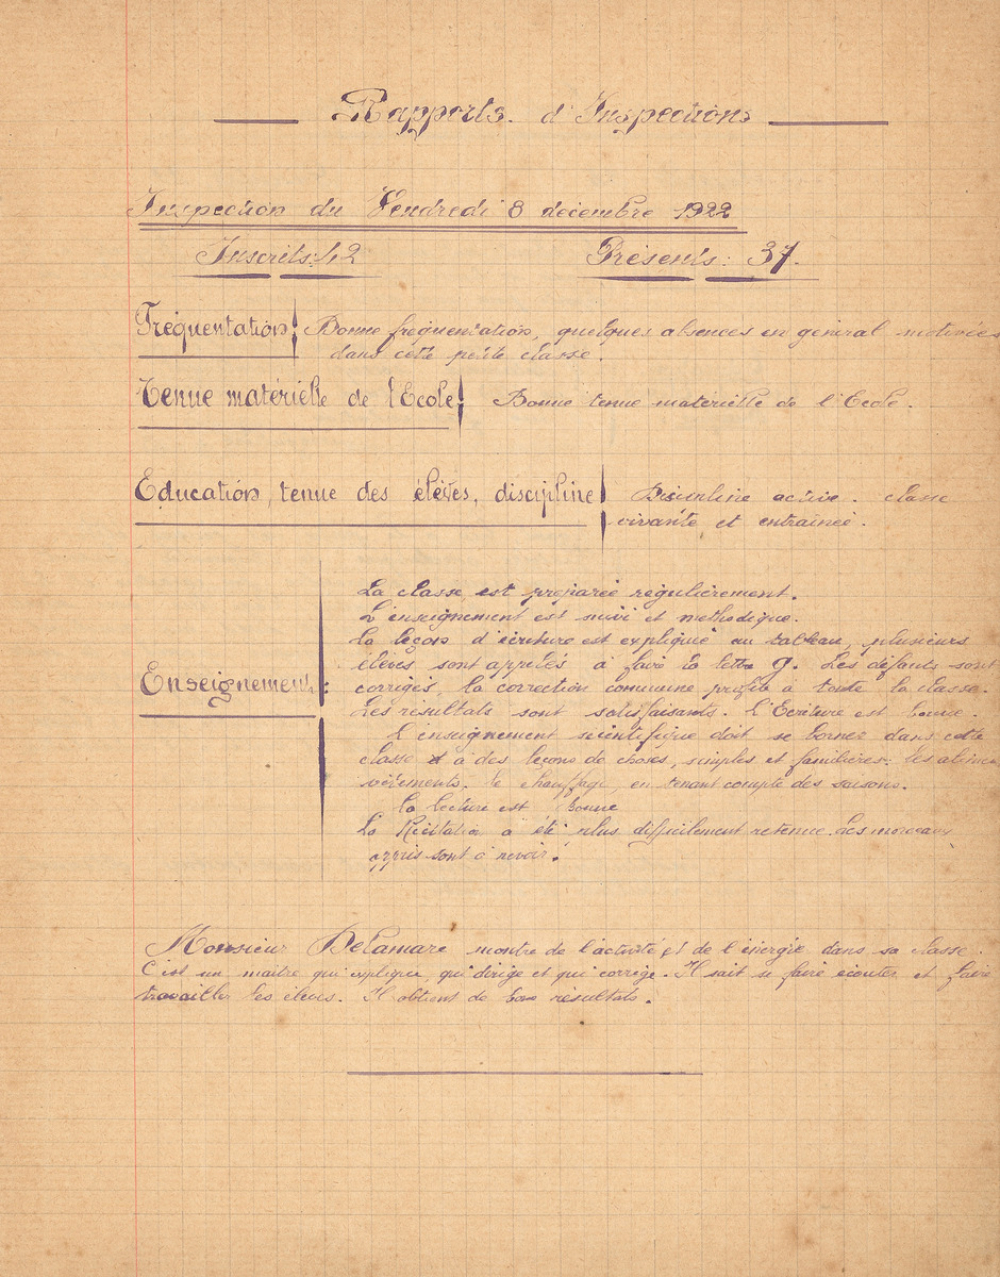 Rapports d'Inspections
Inspection du Vendredi 8 décembre 1922
Inscrits: 42 Présents: 37.
Fréquentation: Bonne fréquentation, quelques absences en général motivées
dans cette petite classe.
Tenue matérielle de l'Ecole: Bonne tenue matérielle de l'Ecole.
Education, tenue des élèves, discipline Discipline active. classe
vivante et entraînée.
La classe est préparée régulièrement.
L'enseignement est suivi et méthodique.
La leçon d'écriture est expliquée au tableau, plusieurs
élèves sont appelés à faire la lettre g. Les défauts sont
Enseignement: corrigés, la correction commune profite à toute la classe.
Les résultats sont satisfaisants. l'Ecriture est bonne.
l'enseignement scientifique doit se borner dans cette
classe à des leçons de choses, simples et familières: les alimen
vêtements, le chauffage, en tenant compte des saisons.
la lecture est bonne
La Récitation a été plus difficilement retenue. Les morceaux
appris sont à revoir.
Monsieur Delamare montre de l'activité et de l'énergie dans sa classe.
C'est un maître qui explique, qui dirige et qui corrige. Il sait se faire écouter et faire
travailler les élèves. Il obtient de bons résultats.